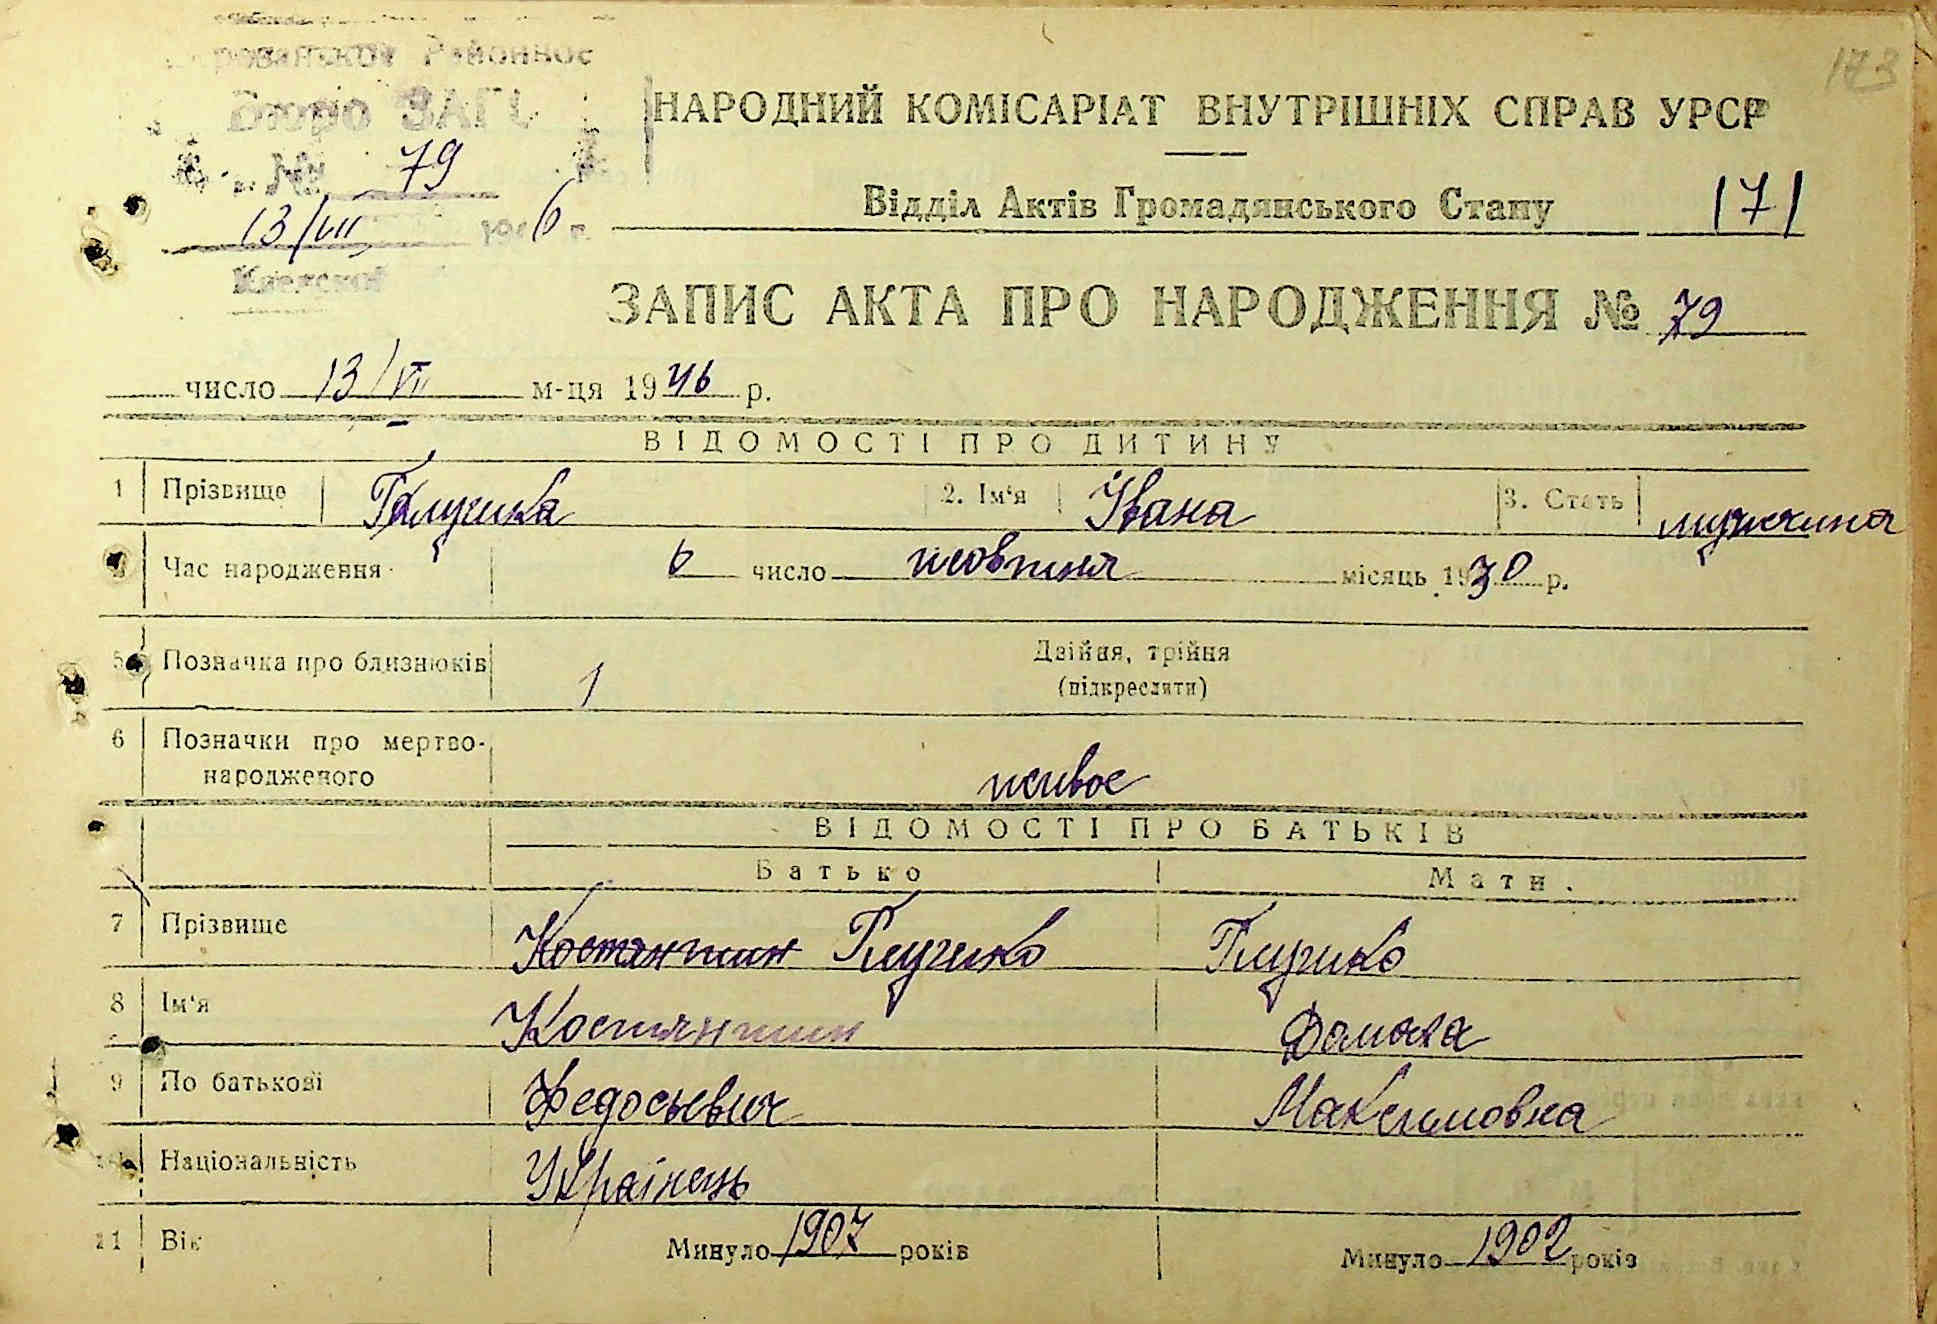 173
Районное
Бюро ЗАГС
№ 79
13/VII 1946 г.
Киевской
НАРОДНИЙ КОМІСАРІАТ ВНУТРІШНІХ СПРАВ УРСР
Відділ Актів Громадянського Стану 171
ЗАПИС АКТА ПРО НАРОДЖЕННЯ № 79
число 13/VII м-ця 1946 р.
ВІДОМОСТІ ПРО ДИТИНУ
1 Прізвище Глушка 2. Ім'я Івана 3. Стать мужчина
Час народження 6 число жовтня місяць 1930 р.
5 Позначка про близнюків 1 Двійня, трійня
(підкреслити)
6 Позначки про мертво-
народженого живое
ВІДОМОСТІ ПРО БАТЬКІВ
Батько Мати.
7 Прізвище Костянтин Глушко Глушко
8 Ім'я Костянтин Домаха
9 По батькові Федосьевич Максимовна
10 Національність Українець
11 Вік Минуло 1907 років Минуло 1902 років